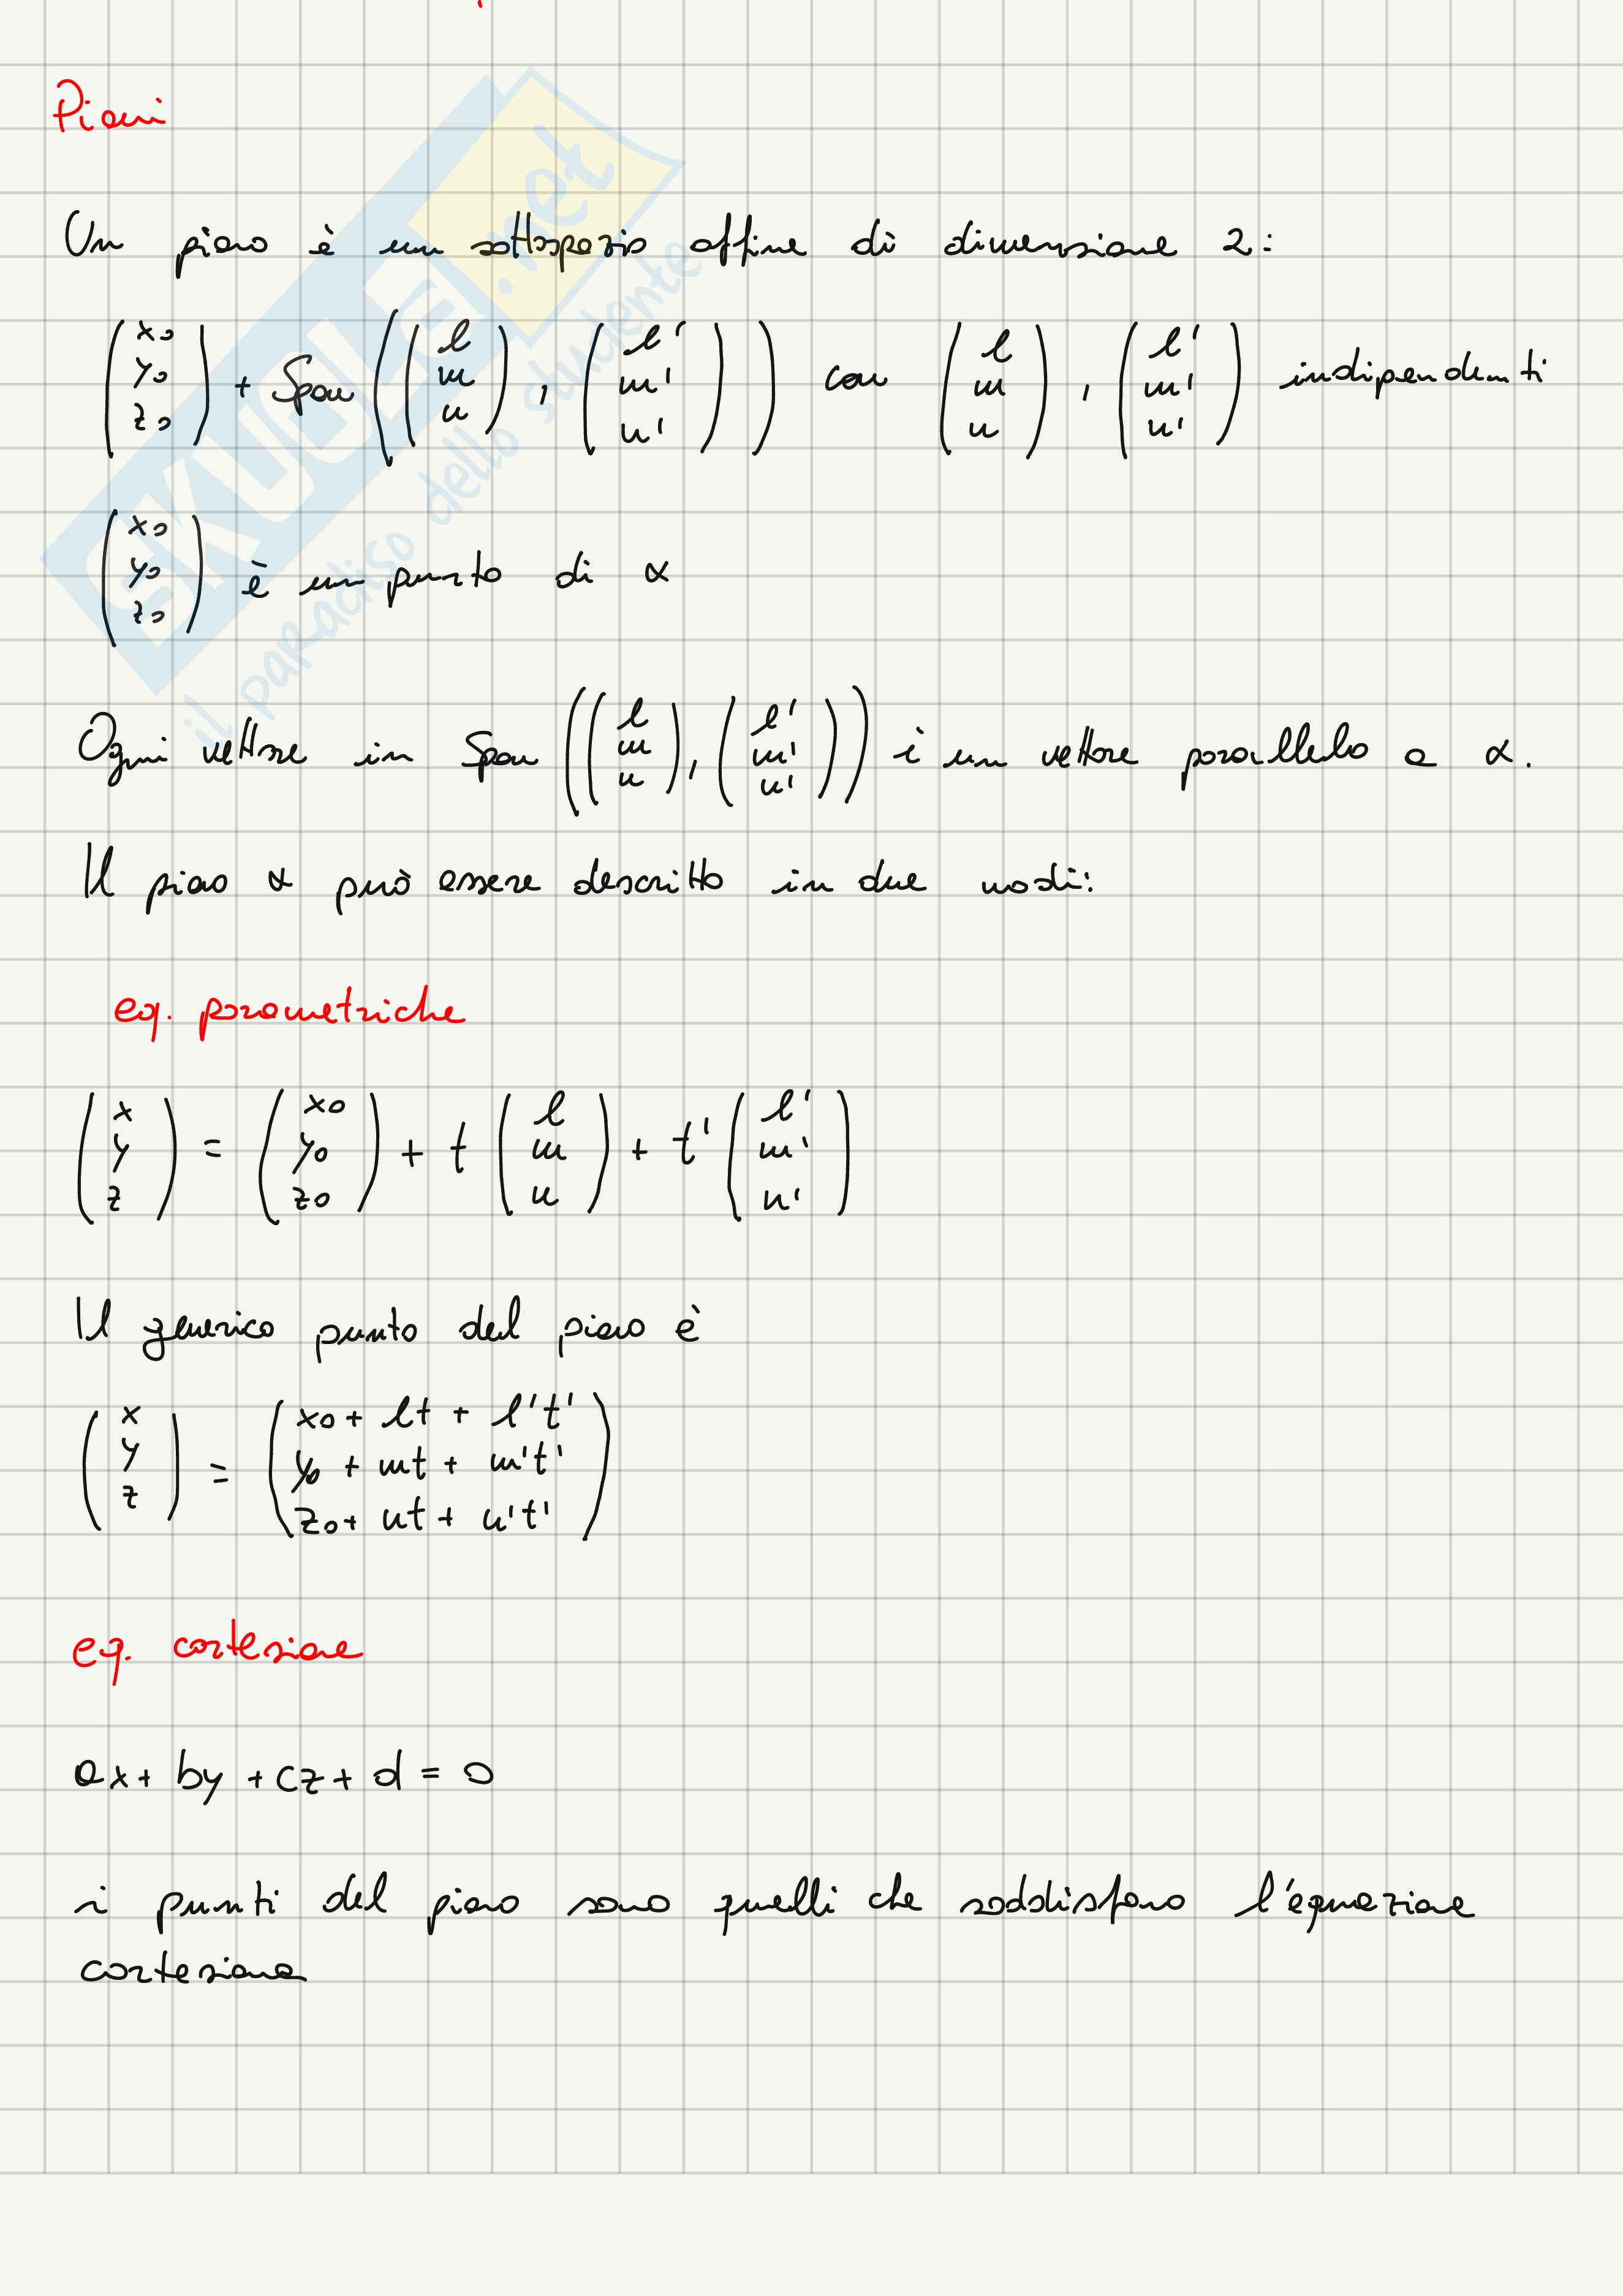 Piani
Un piano è un sottospazio affine di dimensione 2:
(x0 y0 z0) + Span((l m n), (l' m' n')) con (l m n), (l' m' n') indipendenti
(x0 y0 z0) è un punto di α
Ogni vettore in Span((l m n), (l' m' n')) è un vettore parallelo a α.
Il piano α può essere descritto in due modi:
eq. parametriche
(x y z) = (x0 y0 z0) + t (l m n) + t' (l' m' n')
Il generico punto del piano è
(x y z) = (x0 + lt + l't' y0 + mt + m't' z0 + nt + n't')
eq. cartesiane
ax + by + cz + d = 0
i punti del piano sono quelli che soddisfano l'equazione
cartesiana
SKUOLA.net
il paradiso dello studente